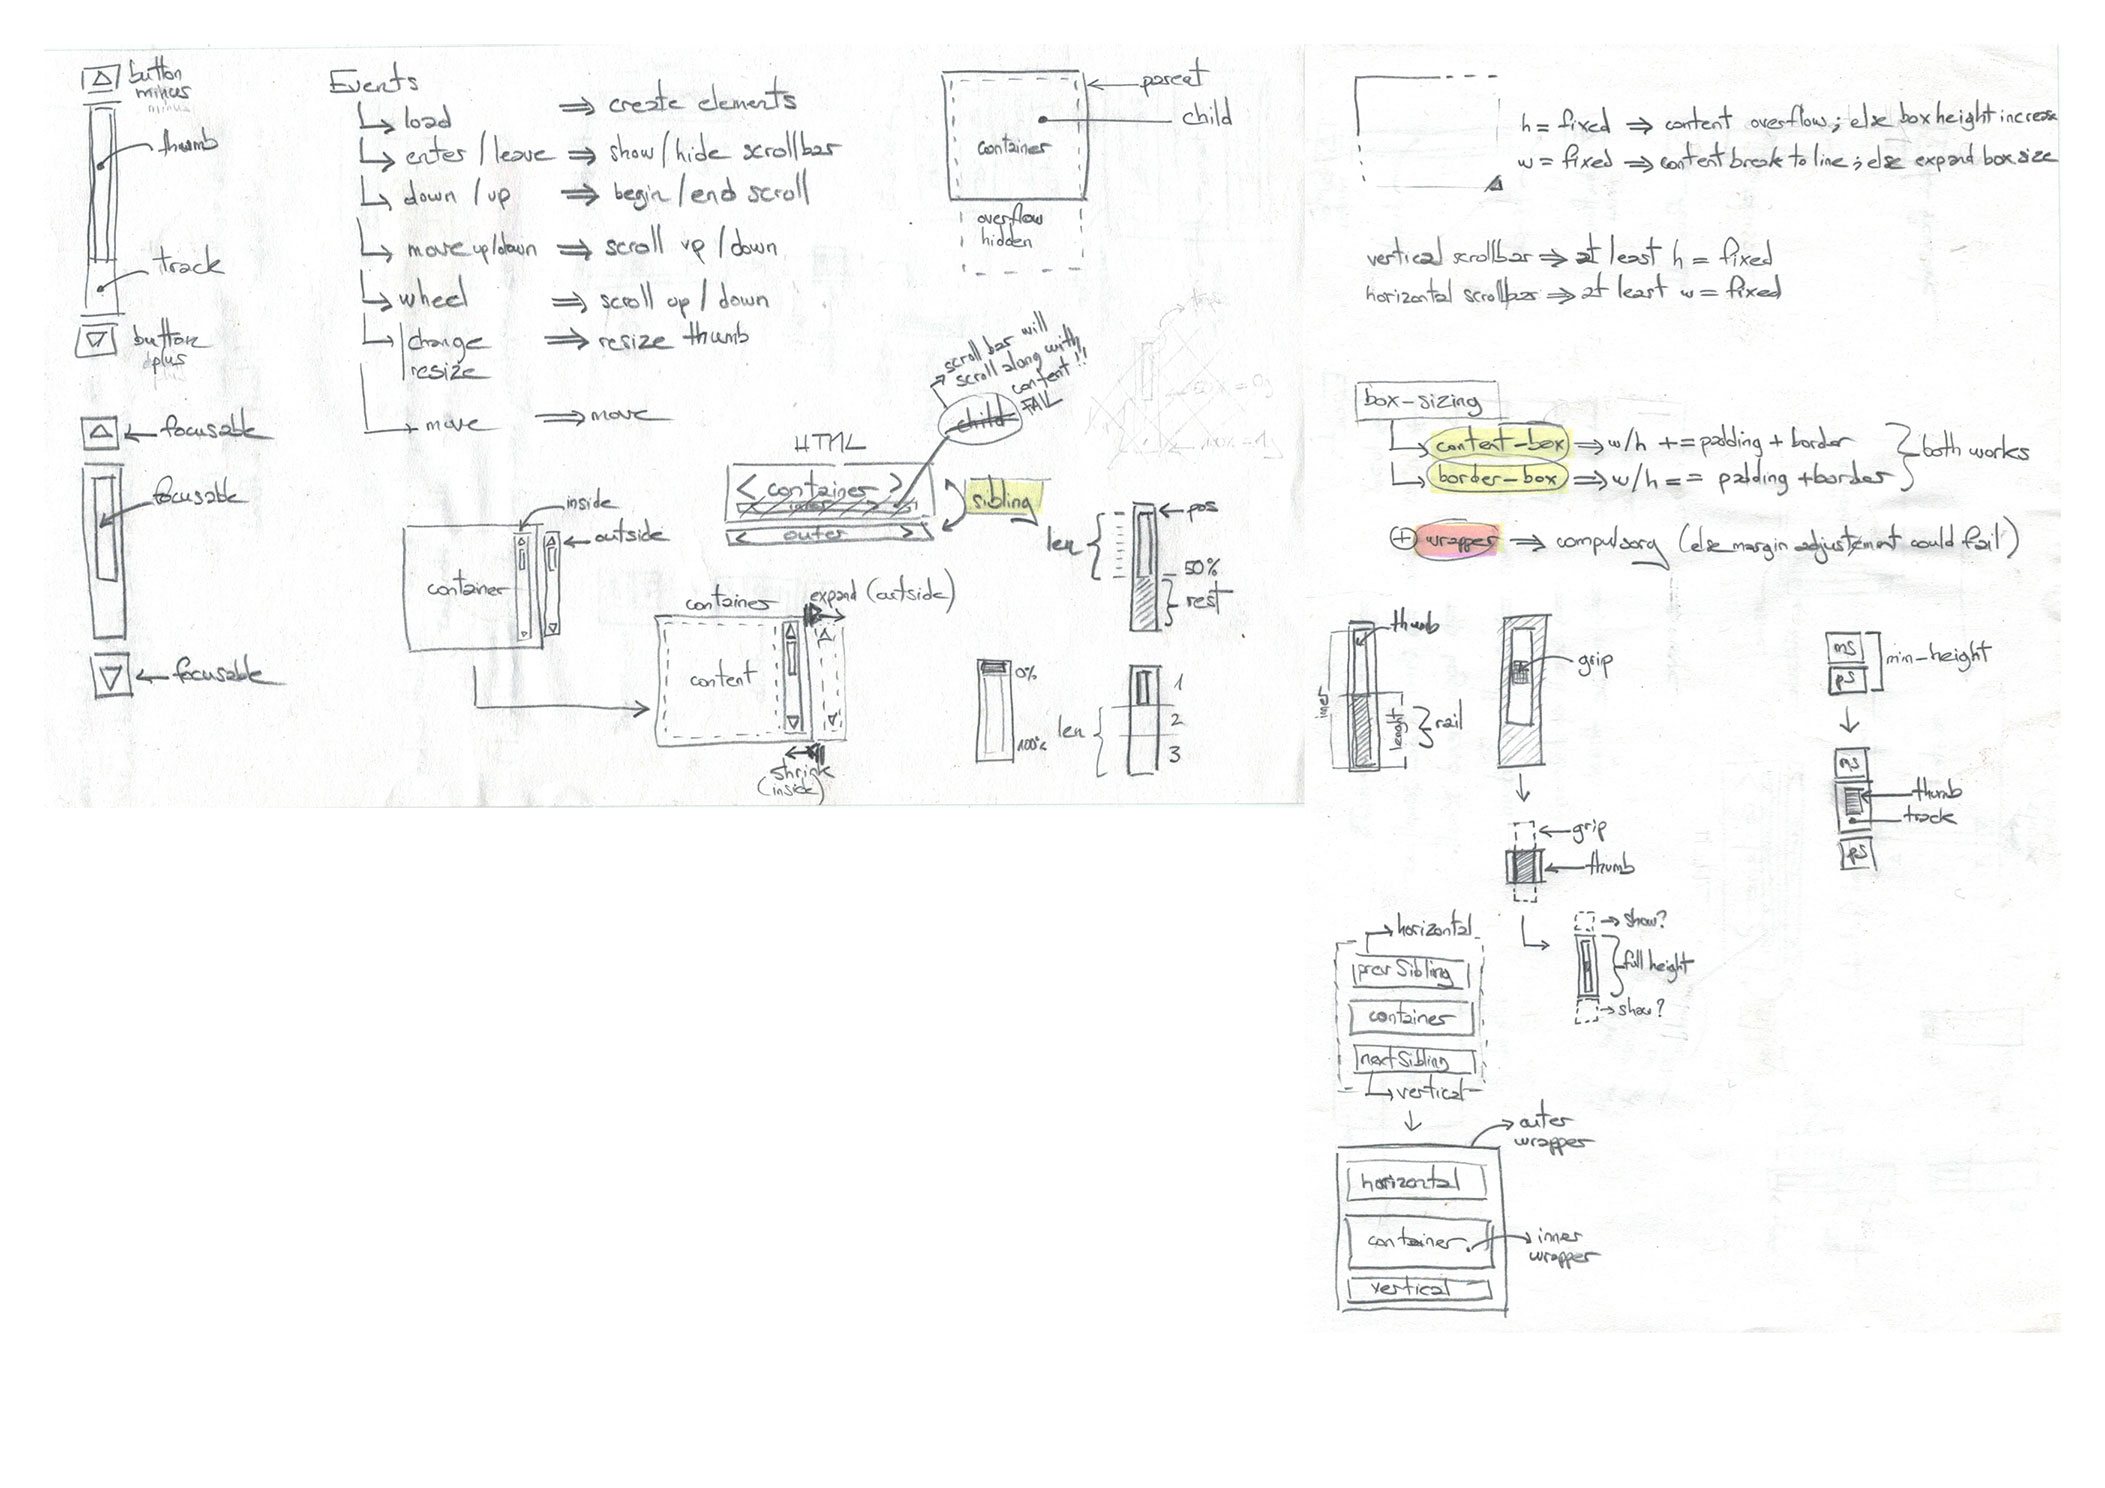 button
minus
minus
thumb
track
button
plus
focusable
focusable
focusable
Events
load ⇒ create elements
enter / leave ⇒ show / hide scrollbar
down / up ⇒ begin / end scroll
move up/down ⇒ scroll up / down
wheel ⇒ scroll up / down
change ⇒ resize thumb
resize
move ⇒ move
parent
child
container
overflow
hidden
scroll bar will
scroll along with
content !!
FAIL
child
HTML
< container >
< outer >
sibling
inside
outside
container
container
expand (outside)
content
shrink
(inside)
len
pos
50%
rest
0%
100%
len
1
2
3
h = fixed ⇒ content overflow ; else box height increase
w = fixed ⇒ content break to line ; else expand box size
vertical scrollbar ⇒ at least h = fixed
horizontal scrollbar ⇒ at least w = fixed
box-sizing
content-box ⇒ w/h += padding + border
border-box ⇒ w/h == padding + border
both works
+ wrapper ⇒ compulsory (else margin adjustement could fail)
thumb
rail
grip
grip
thumb
show?
full height
show?
mS
pS
min-height
pS
thumb
track
pS
horizontal
prevSibling
container
nextSibling
vertical
outer
wrapper
horizontal
container
inner
wrapper
vertical